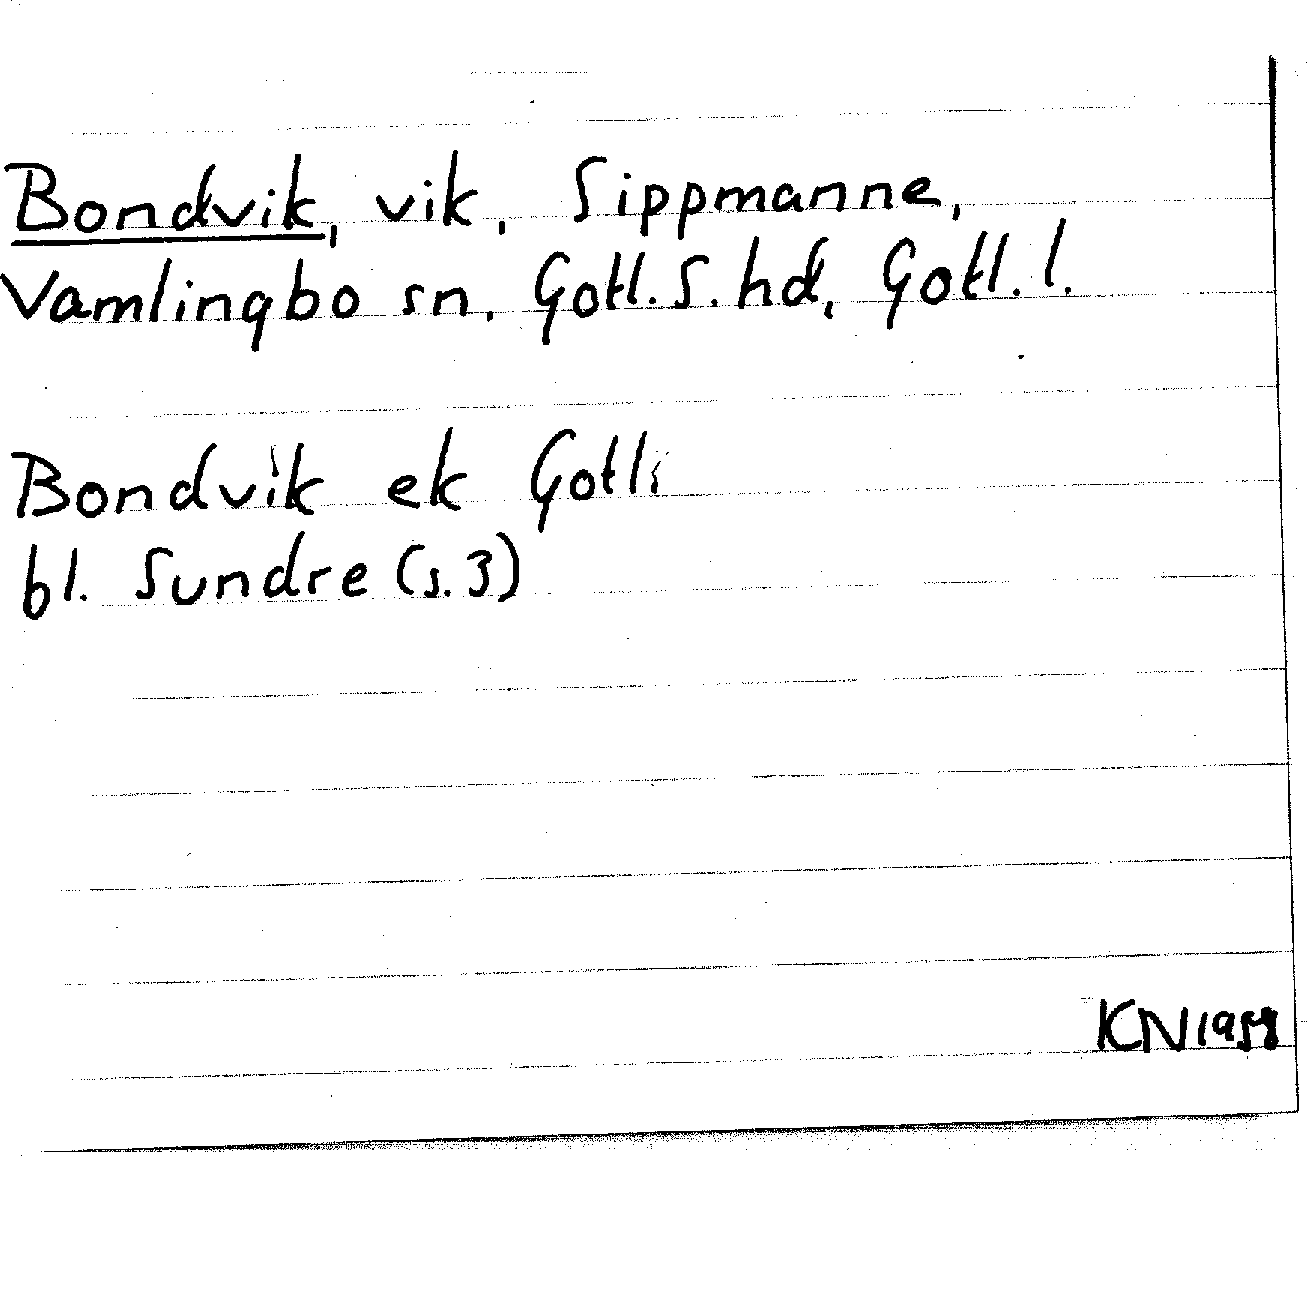 Bondvik, vik, Sippmanne,
Vamlingbo sn, Gotl. S. hd, Gotl. l.
Bondvik ek Gotl;
bl. Sundre (s. 3)
KN 1958